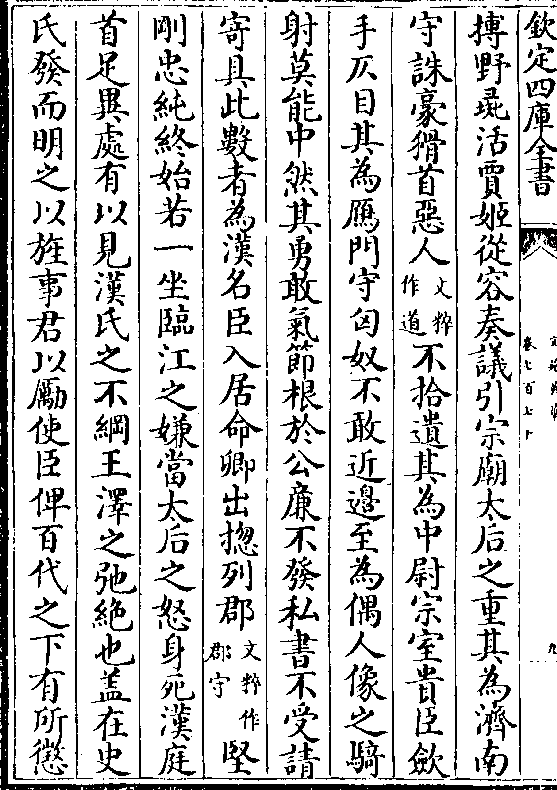 欽定四庫全書
卷七百七十
九
搏野彘活賈姬從容奏議引宗廟太后之重其為濟南
守誅豪猾首惡人文粹作道不拾遺其為中尉宗室貴臣斂
手仄目其為鴈門守匈奴不敢近邊至為偶人像之騎
射莫能中然其勇敢氣節根於公廉不發私書不受請
寄具此數者為漢名臣入居命卿出揔列郡文粹作郡守堅
剛忠純終始若一坐臨江之嫌當太后之怒身死漢庭
首足異處有以見漢氏之不綱王澤之弛絶也盖在史
氏發而明之以旌事君以勵使臣俾百代之下有所懲